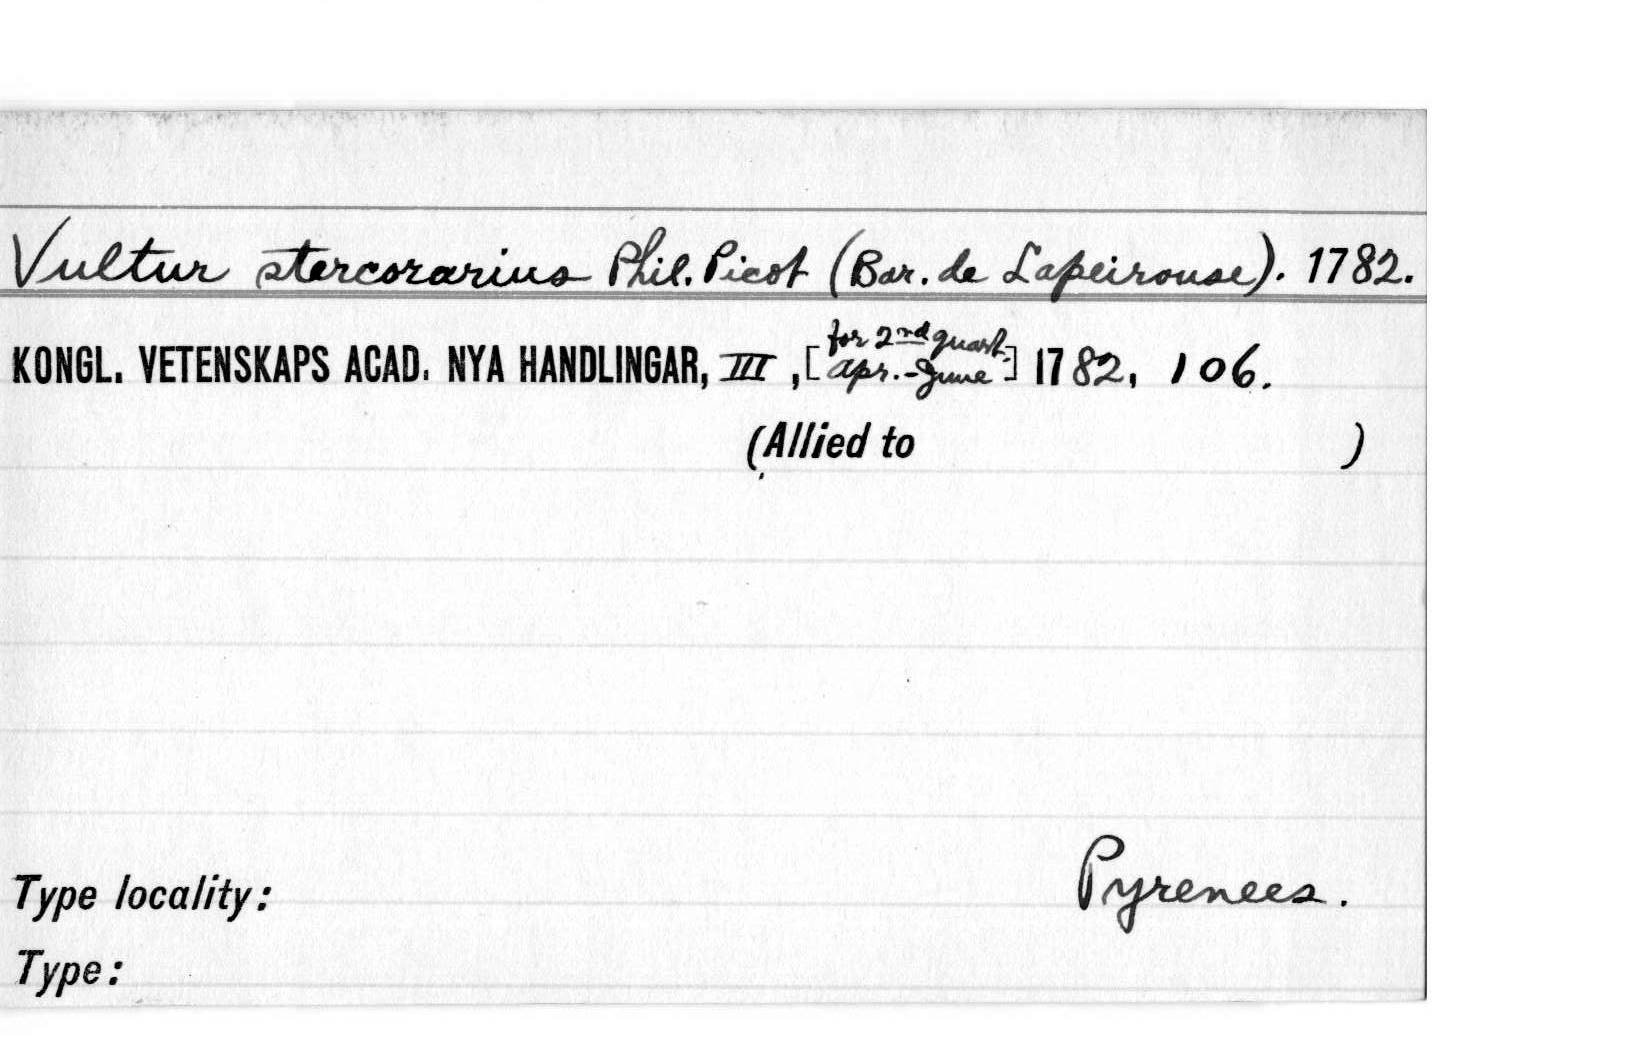 Vultur stercorarius Phil. Picot (Bar. de Lapeirouse). 1782.
KONGL. VETENSKAPS ACAD. NYA HANDLINGAR, III, [for 2nd quart. Apr.-June] 1782, 106.
(Allied to )
Type locality: Pyrenees.
Type: